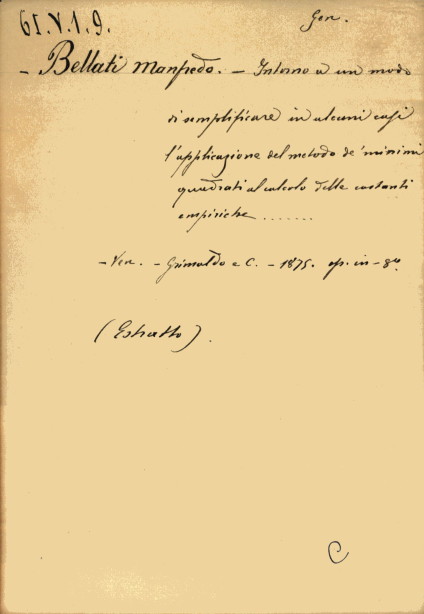 61.V.1.9.
Gen.
- Bellati Manfredo. - Intorno a un modo
di semplificare in alcuni casi
l'applicazione del metodo de' minimi
quadrati al calcolo delle costanti
empiriche .......
- Ven. - Grimaldo e C. - 1875. op. in-8º
(Estratto).
C